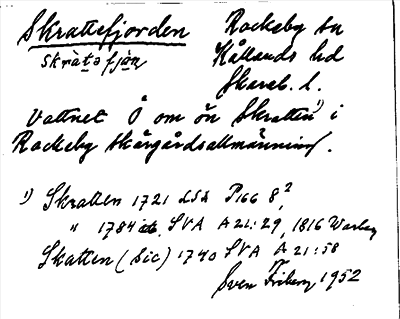 Skrattefjorden Rackeby sn
skràt̲ə fjɑ̀n̲ Kållands hd
Skarab. l.
Vattnet Ö om ön Skratten¹) i
Rackeby skärgårdsallmänning.
¹) Skratten 1721 LSA P166 8²,
" 1784 SVA A21:29, 1816 Warberg
Skatten (sic) 1740 SVA A21:58
Sven Friberg 1952